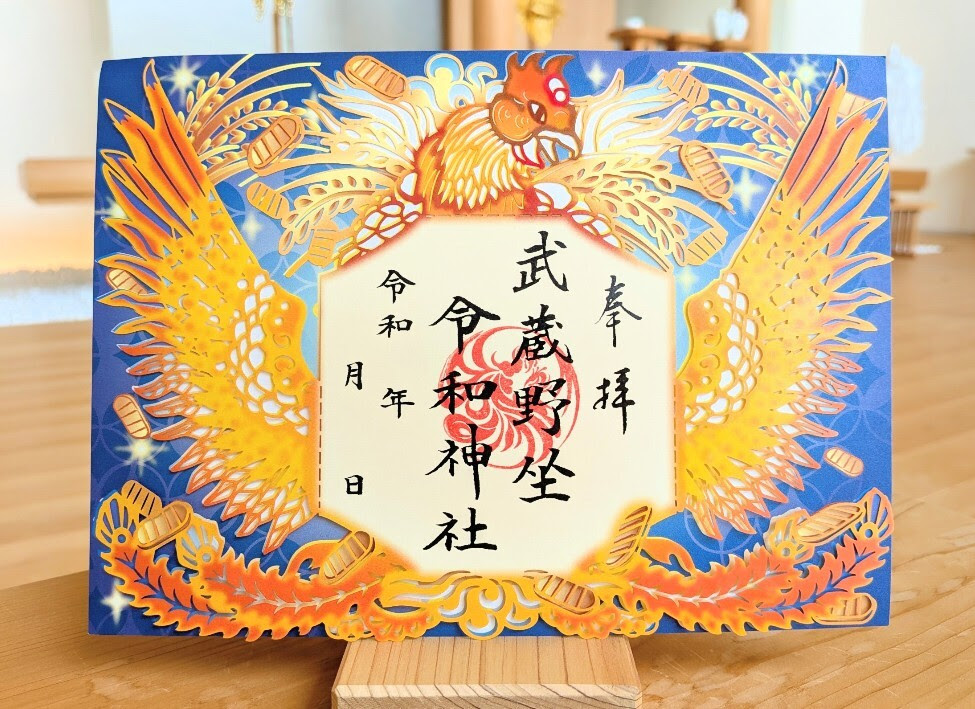 奉拝
武蔵野坐
令和神社
令和 年
月 日